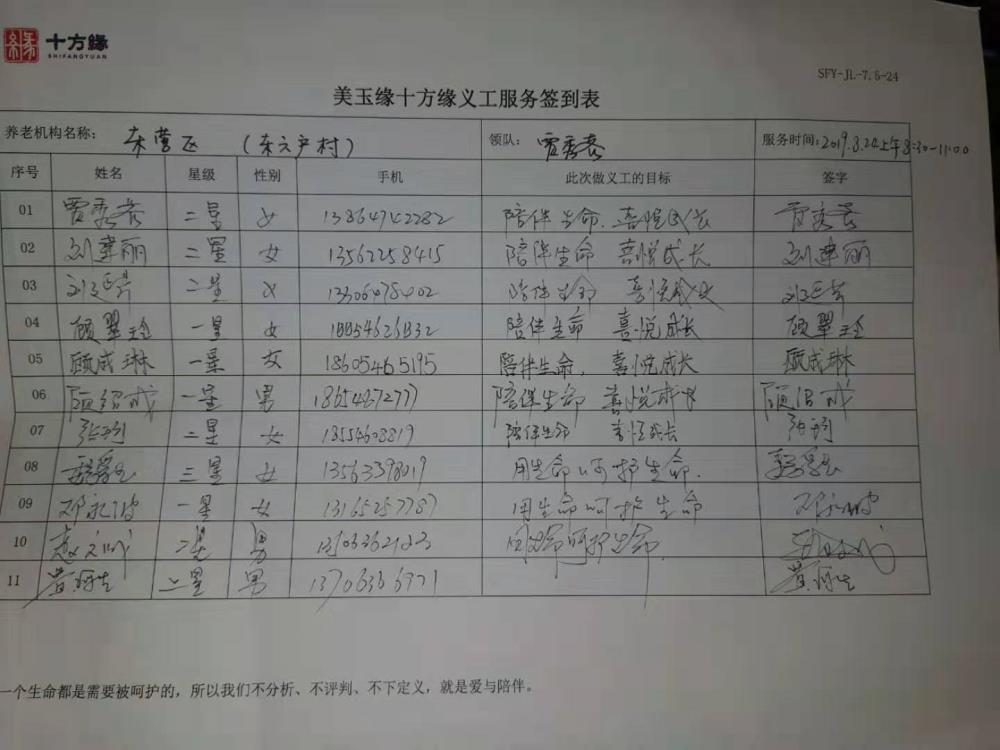 緣 十方緣
SHIFANGYUAN
SFY-JL-7.5-24
美玉缘十方缘义工服务签到表
养老机构名称: 东营区 (东六户村) 领队: 贾秀蓉 服务时间:2019.8.24上午8:30-11:00
序号 姓名 星级 性别 手机 此次做义工的目标 签字
01 贾秀蓉 二星 女 13864742282 陪伴生命.喜悦成长 贾秀蓉
02 刘建丽 二星 女 13562258415 陪伴生命 喜悦成长 刘建丽
03 二星 女 13306478402 陪伴生命 喜悦成长
04 顾翠玲 一星 女 陪伴生命 喜悦成长 顾翠玲
05 顾成琳 一星 女 18605465195 陪伴生命,喜悦成长 顾成琳
06 一星 男 陪伴生命 喜悦成长
07 二星 女 陪伴生命 喜悦成长
08 三星 女 用生命呵护生命.
09 邓永波 一星 女 用生命呵护生命 邓永波
10 二星 男 用生命呵护生命.
11 二星 男 13706366971
一个生命都是需要被呵护的,所以我们不分析、不评判、不下定义,就是爱与陪伴。